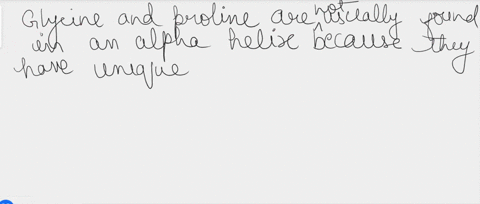 Glycine and proline are not usually found
in an alpha helix because they
have unique